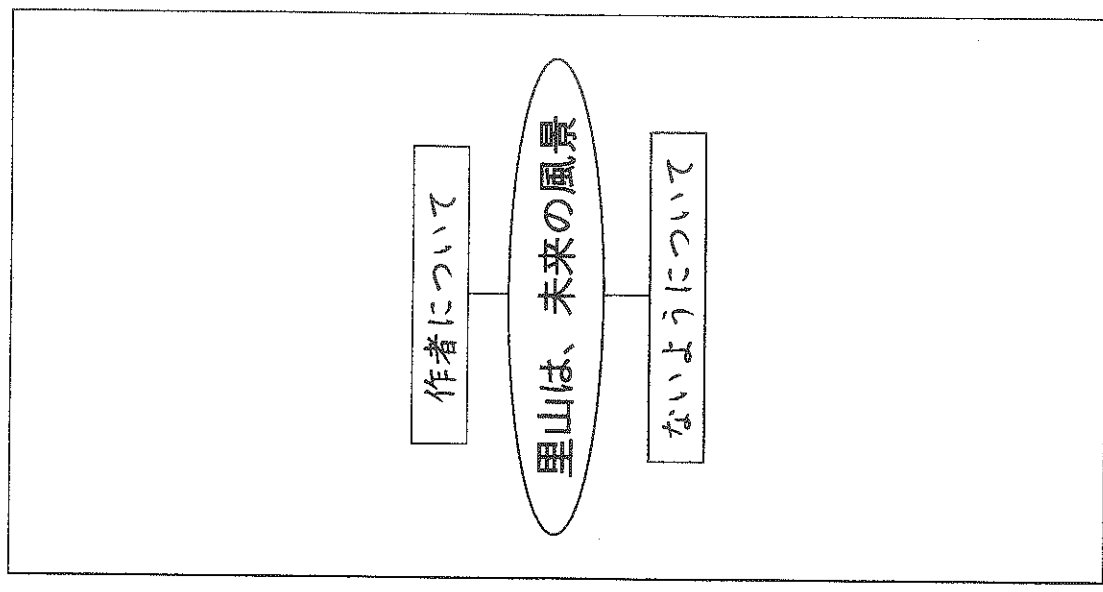 作者について
里山は、未来の風景
ないようについて